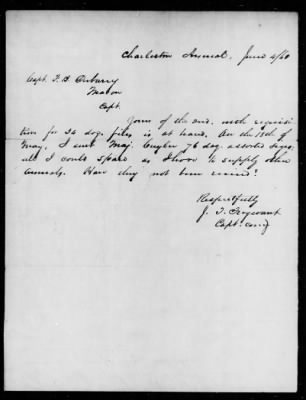 Charleston Arsenal, June 4/60
Capt.
Macon
Capt.
Yours of the 2nd. with requisi-
tion for 36 doz. files is at hand. On the 18th of
May, I sent Maj. 76 doz. assorted sizes,
all I could spare as I have to supply other
Arsenals. Have they not been received?
Respectfully
J. T.
Capt. Comdg